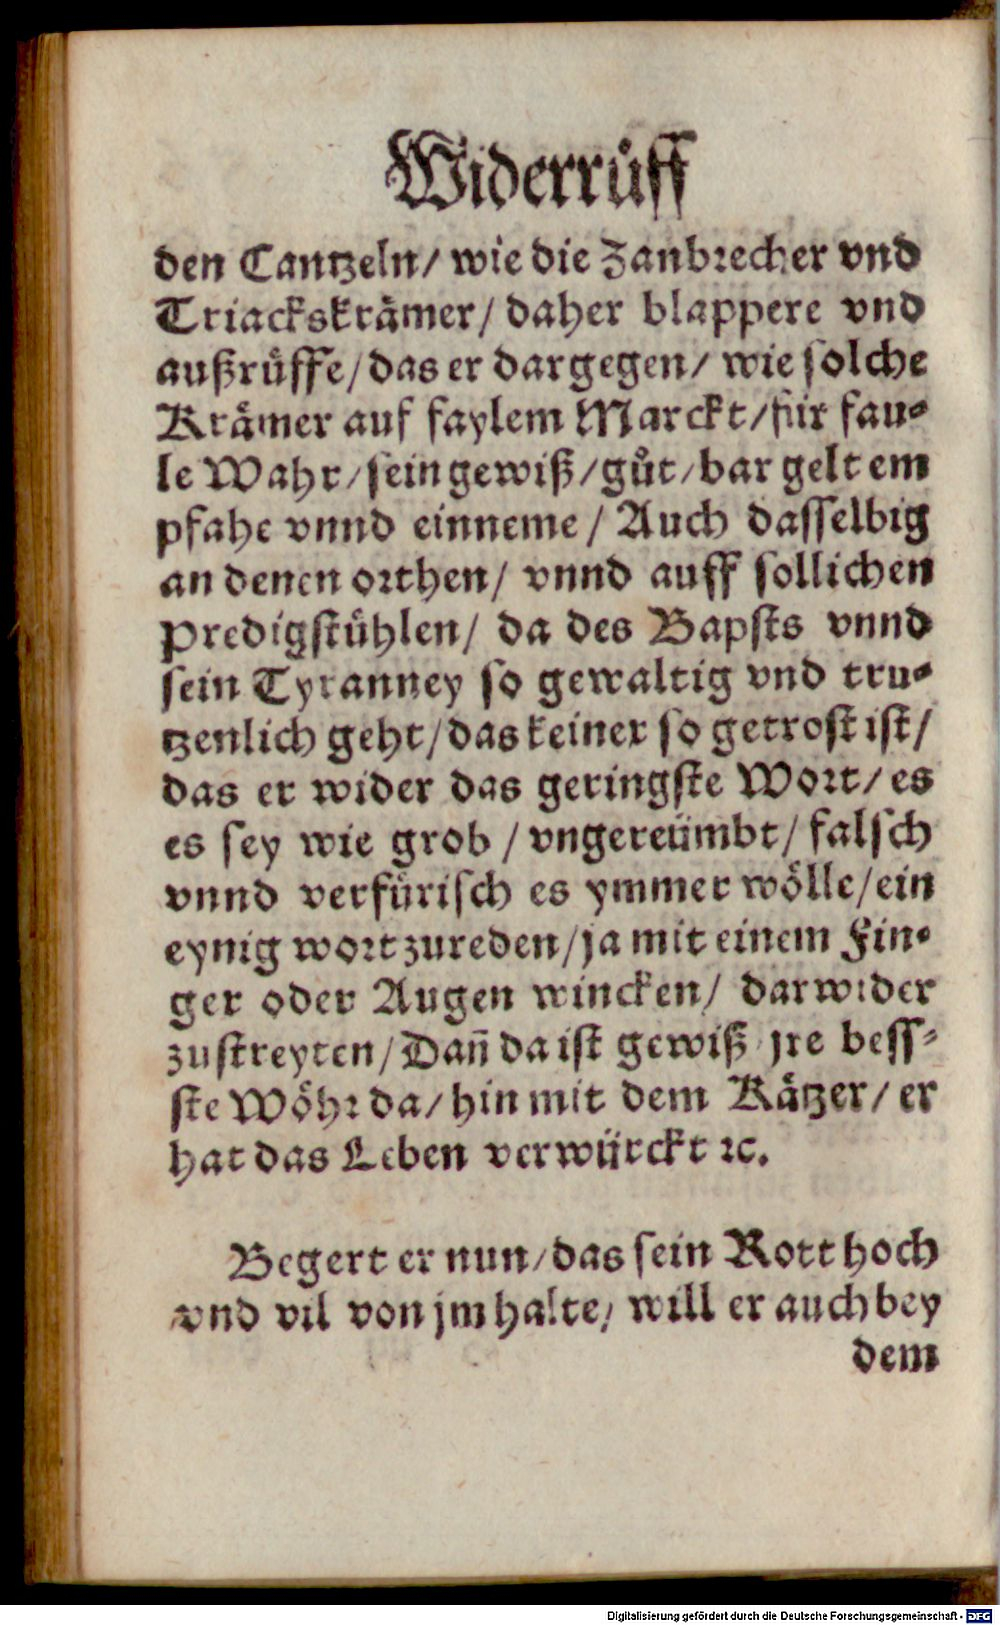 Widerruͤff
den Cantzeln/ wie die Zanbrecher vnd
Triackskraͤmer/ daher blappere vnd
außruͤffe/ das er dargegen/ wie solche
Kraͤmer auf faylem Marckt/ fuͤr fau⸗
le Wahr/ sein gewiß/ guͤt/ bar gelt em
pfahe vnnd einneme/ Auch dasselbig
an denen orthen/ vnnd auff sollichen
Predigstuͤhlen/ da des Bapsts vnnd
sein Tyranney so gewaltig vnd tru⸗
tzenlich geht/ das keiner so getrost ist/
das er wider das geringste Wort/ es
es sey wie grob/ vngereümbt/ falsch
vnnd verfuͤrisch es ymmer woͤlle/ ein
eynig wort zureden/ ja mit einem Fin⸗
ger oder Augen wincken/ darwider
zustreyten/ Dañ da ist gewiß jre bess⸗
ste Woͤhr da/ hin mit dem Kaͤtzer/ er
hat das Leben verwürckt ꝛc.
Begert er nun/ das sein Rott hoch
vnd vil von jm halte/ will er auch bey
dem
Digitalisierung gefördert durch die Deutsche Forschungsgemeinschaft - DFG